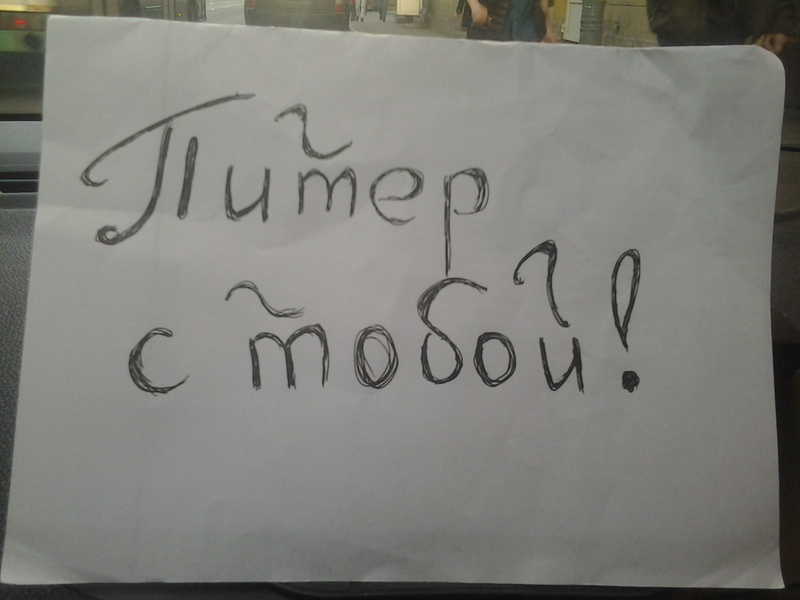 Питер
с тобой!